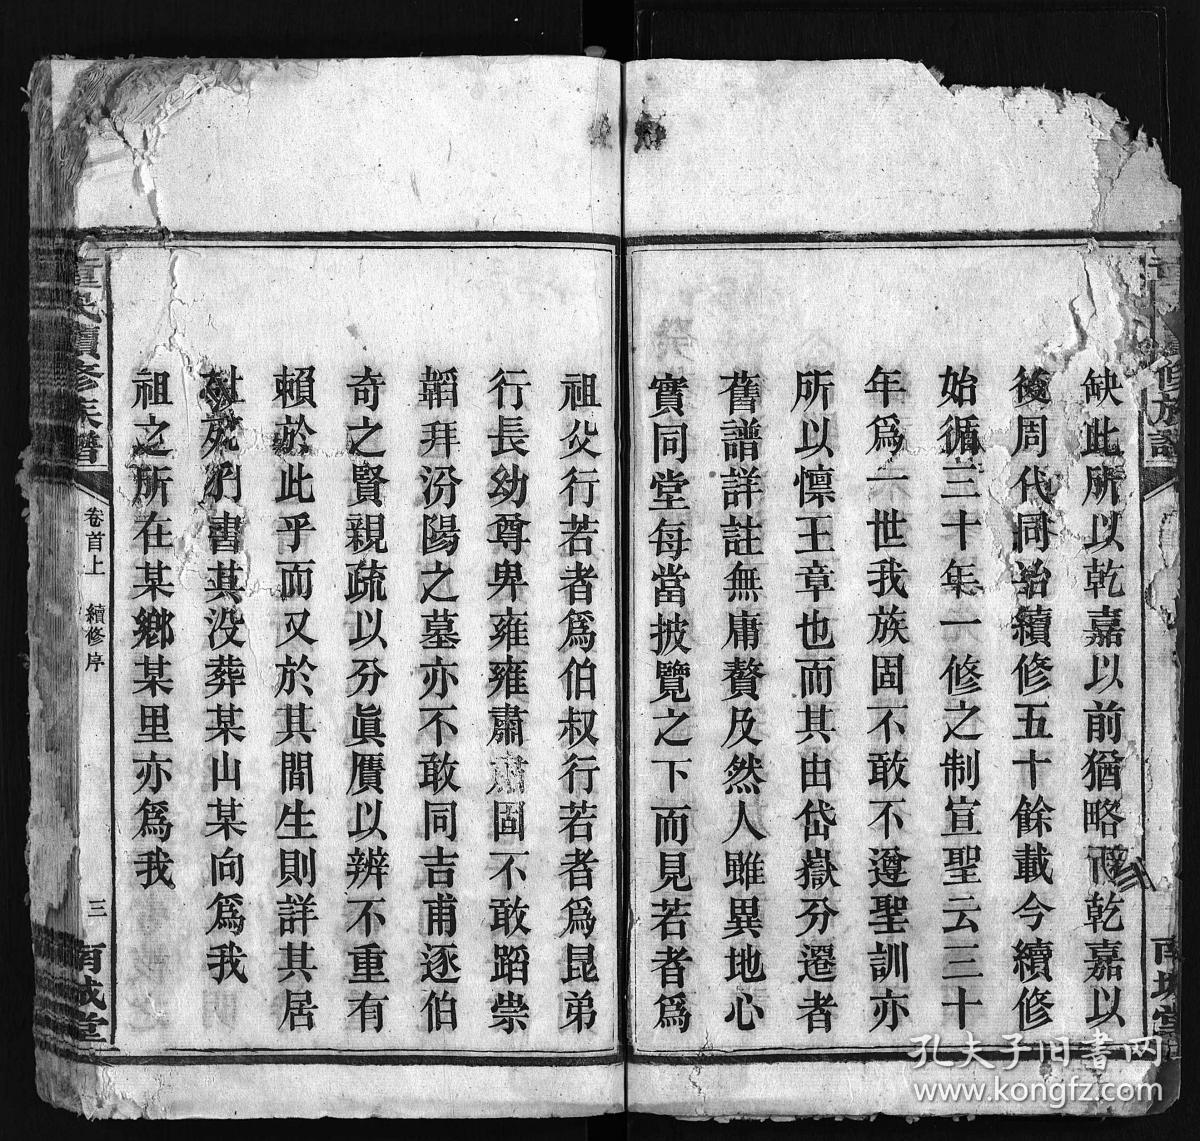 缺此所以乾嘉以前猶略而乾嘉以
後周代同治續修五十餘載今續修
始循三十年一修之制宣聖云三十
年爲一世我族固不敢不遵聖訓亦
所以懍王章也而其由岱嶽分遷者
舊譜詳註無庸贅及然人雖異地心
實同堂每當披覽之下而見若者爲
祖父行若者爲伯叔行若者爲昆弟
行長幼尊卑雍雍肅肅固不敢蹈崇
韜拜汾陽之墓亦不敢同吉甫逐伯
奇之賢親疏以分眞贋以辨不重有
賴於此乎而又於其間生則詳其居
死則書其没葬某山某向爲我
祖之所在某鄉某里亦爲我
童氏續修族譜
卷首上 續修序
三
南城堂
修族譜
南城堂
孔夫子旧書网
www.kongfz.com